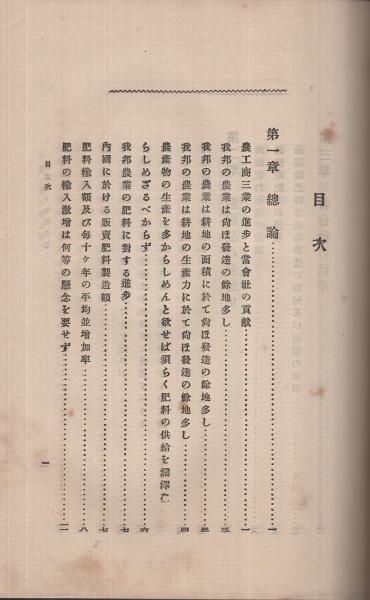 目次
第一章 總論……一
農工商三業の進步と當會社の貢獻……一
我邦の農業は尙ほ發達の餘地多し……三
我邦の農業は耕地の面積に於て尙ほ發達の餘地多し……三
我邦の農業は耕地の生產力に於て尙ほ發達の餘地多し……四
農產物の生產を多からしめんと欲せば須らく肥料の供給を潤澤な
らしめざるべからず……六
我邦農業の肥料に對する進步……七
內國に於ける販賣肥料製造額……七
肥料輸入額及び每十ヶ年の平均並增加率……八
肥料の輸入激增は何等の懸念を要せず……一一
目次
一